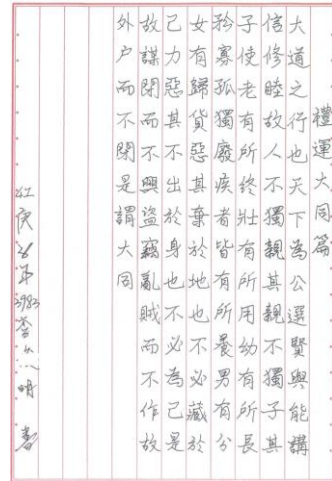 禮運大同篇
大道之行也天下為公選賢與能講
信修睦故人不獨親其親不獨子其
子使老有所終壯有所用幼有所長
矜寡孤獨廢疾者皆有所養男有分
女有歸貨惡其棄於地也不必藏於
己力惡其不出於身也不必為己是
故謀閉而不興盜竊亂賊而不作故
外户而不閉是謂大同
年3983 明 書